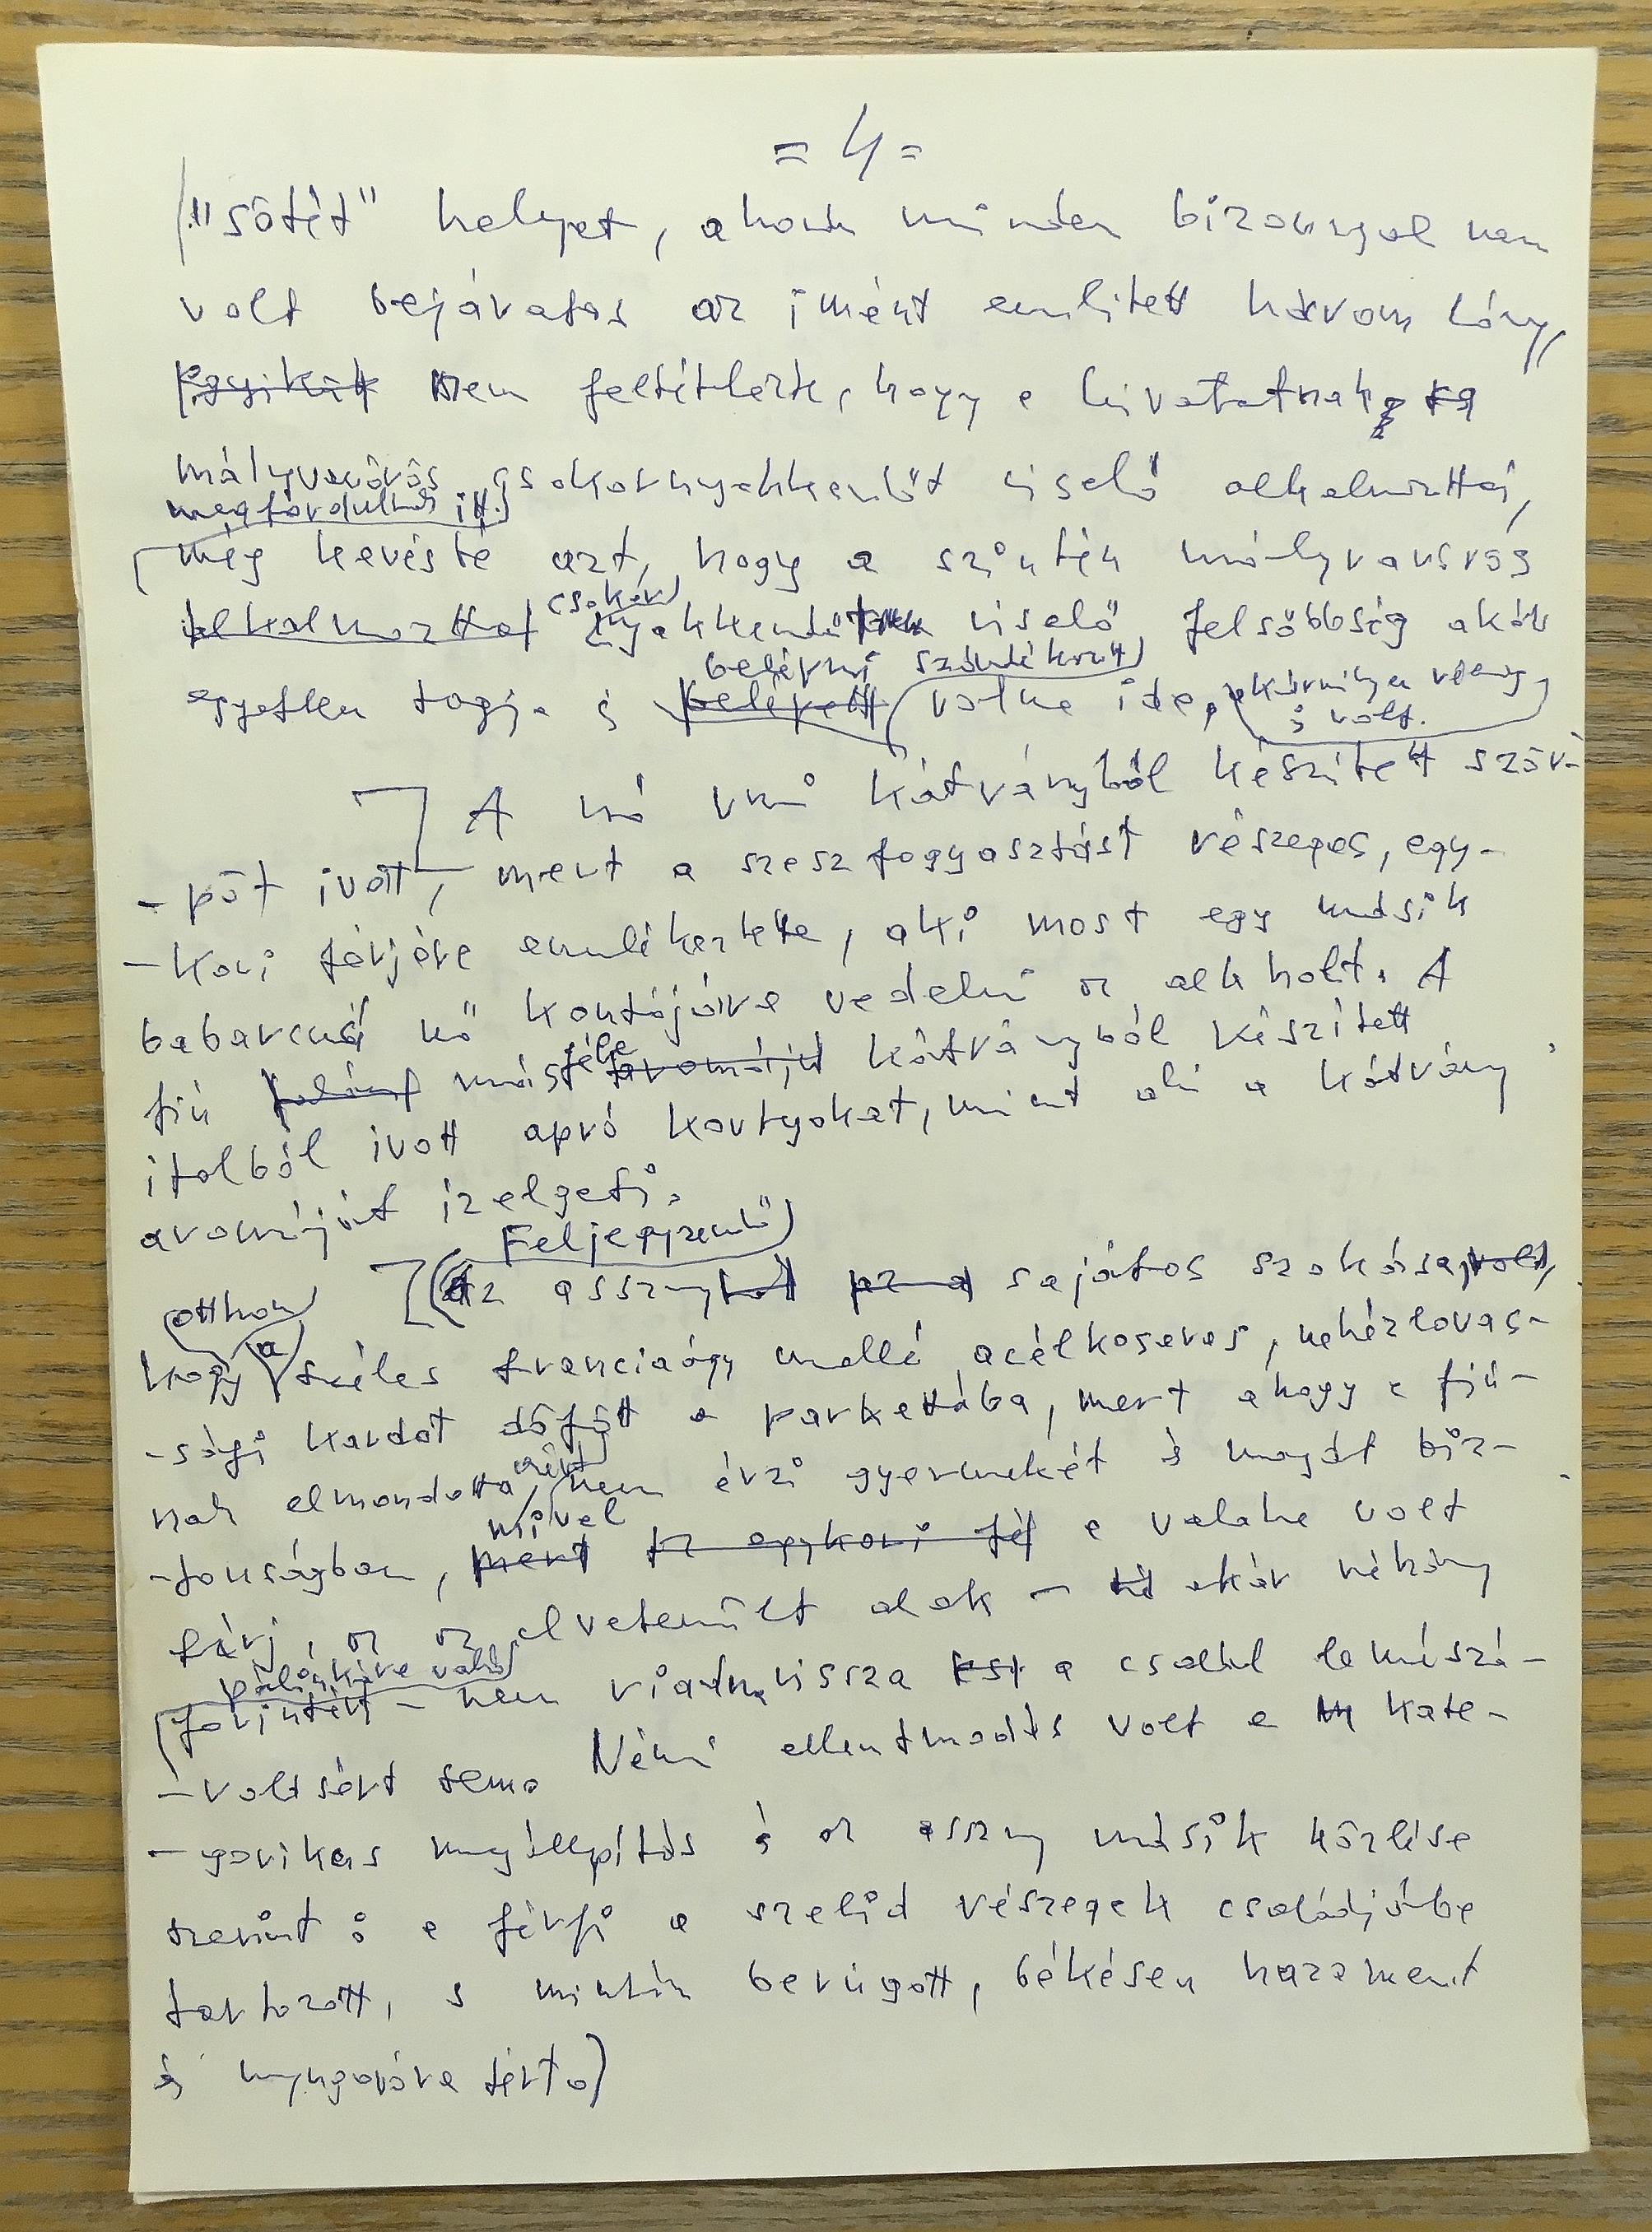 = 4 =
"sötét" helyet, ahová minden bizonnyal nem
volt bejáratos az imént említett három lány,
Egyikük sem feltétlezte, hogy e hivatalnak
mályvavörös csokornyakkendőt viselő alkalmazottai,
megfordulnak itt.
még kevésbé azt, hogy a szintén mályvavörös
alkalmazottai nyakkendőt viselő felsőbbség akár
csokor
egyetlen tagja is belépett volna ide, akármilyen rang
belépni szándékozott
is volt.
A nő vmi kátványból készített szöv-
-pöt ivott, mert a szeszfogyasztást részeges, egy-
-kori férjére emlékeztette, aki most egy másik
babarcusú nő kontójára vedeli az alkholt. A
fiú másféle aromájú kátványból készített
italból ivott apró kortyokat, mint aki a kátvány
aromáját ízelgeti.
Feljegyzendő
az asszony sajátos szokása volt,
otthon
a
hogy széles franciaágy mellé acélkosaras, nehézlovas-
-sági kardot döfött a parkettába, mert ahogy a fiú-
nak elmondotta, nem érzi gyermekét s magát biz-
mivel
-tonságban, mert az egykori fé a valaha volt
férj, az az elvetemült alak – akár néhány
pálinkára való
forintért – nem riadna vissza a család lemészá-
-rolásáért sem. Némi ellentmodás volt e kate-
-gorikus megállapítás s az asszony másik közlése
szerint is e férfi a szelíd részegek családjába
tartozott, s miután berúgott, békésen hazament
és nyugovóra tért.)